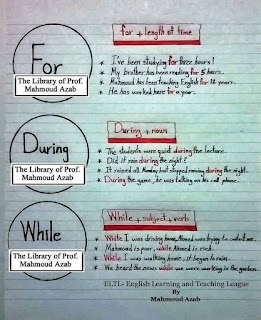 for + length of time
For
The Library of Prof.
Mahmoud Azab
* I've been studying for three hours!
* My brother has been reading for 5 hours.
* Mahmoud has been teaching English for 12 years.
* He has worked here for a year.
During + noun
During
The Library of Prof.
Mahmoud Azab
* The students were quiet during the lecture.
* Did it rain during the night?
* It rained all Monday but stopped raining during the night.
* During the game, he was talking on his cell phone.
While + subject + verb
While
The Library of Prof.
Mahmoud Azab
* While I was driving home, Ahmed was trying to contact me.
* Mahmoud is poor, while Ahmed is rich.
* While I was walking home, it began to rain.
* We heard the news while we were working in the garden.
ELTL- English Learning and Teaching League
By
Mahmoud Azab